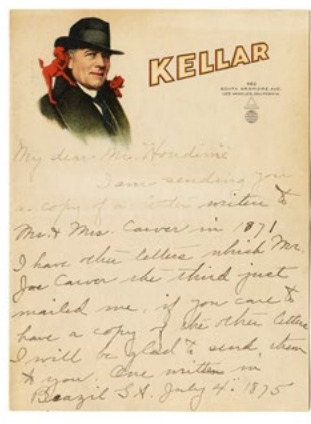 KELLAR
SOUTH ARDMORE AVE.
LOS ANGELES, CALIFORNIA.
My dear Mr. Houdini
I am sending you
a copy of a letter written to
Mr. & Mrs. Carver in 1871
I have other letters which Mr.
Joe Carver the third just
mailed me, if you care to
have a copy of the other letters
I will be glad to send them
to you. One written in
Brazil S.A. July 4" 1875